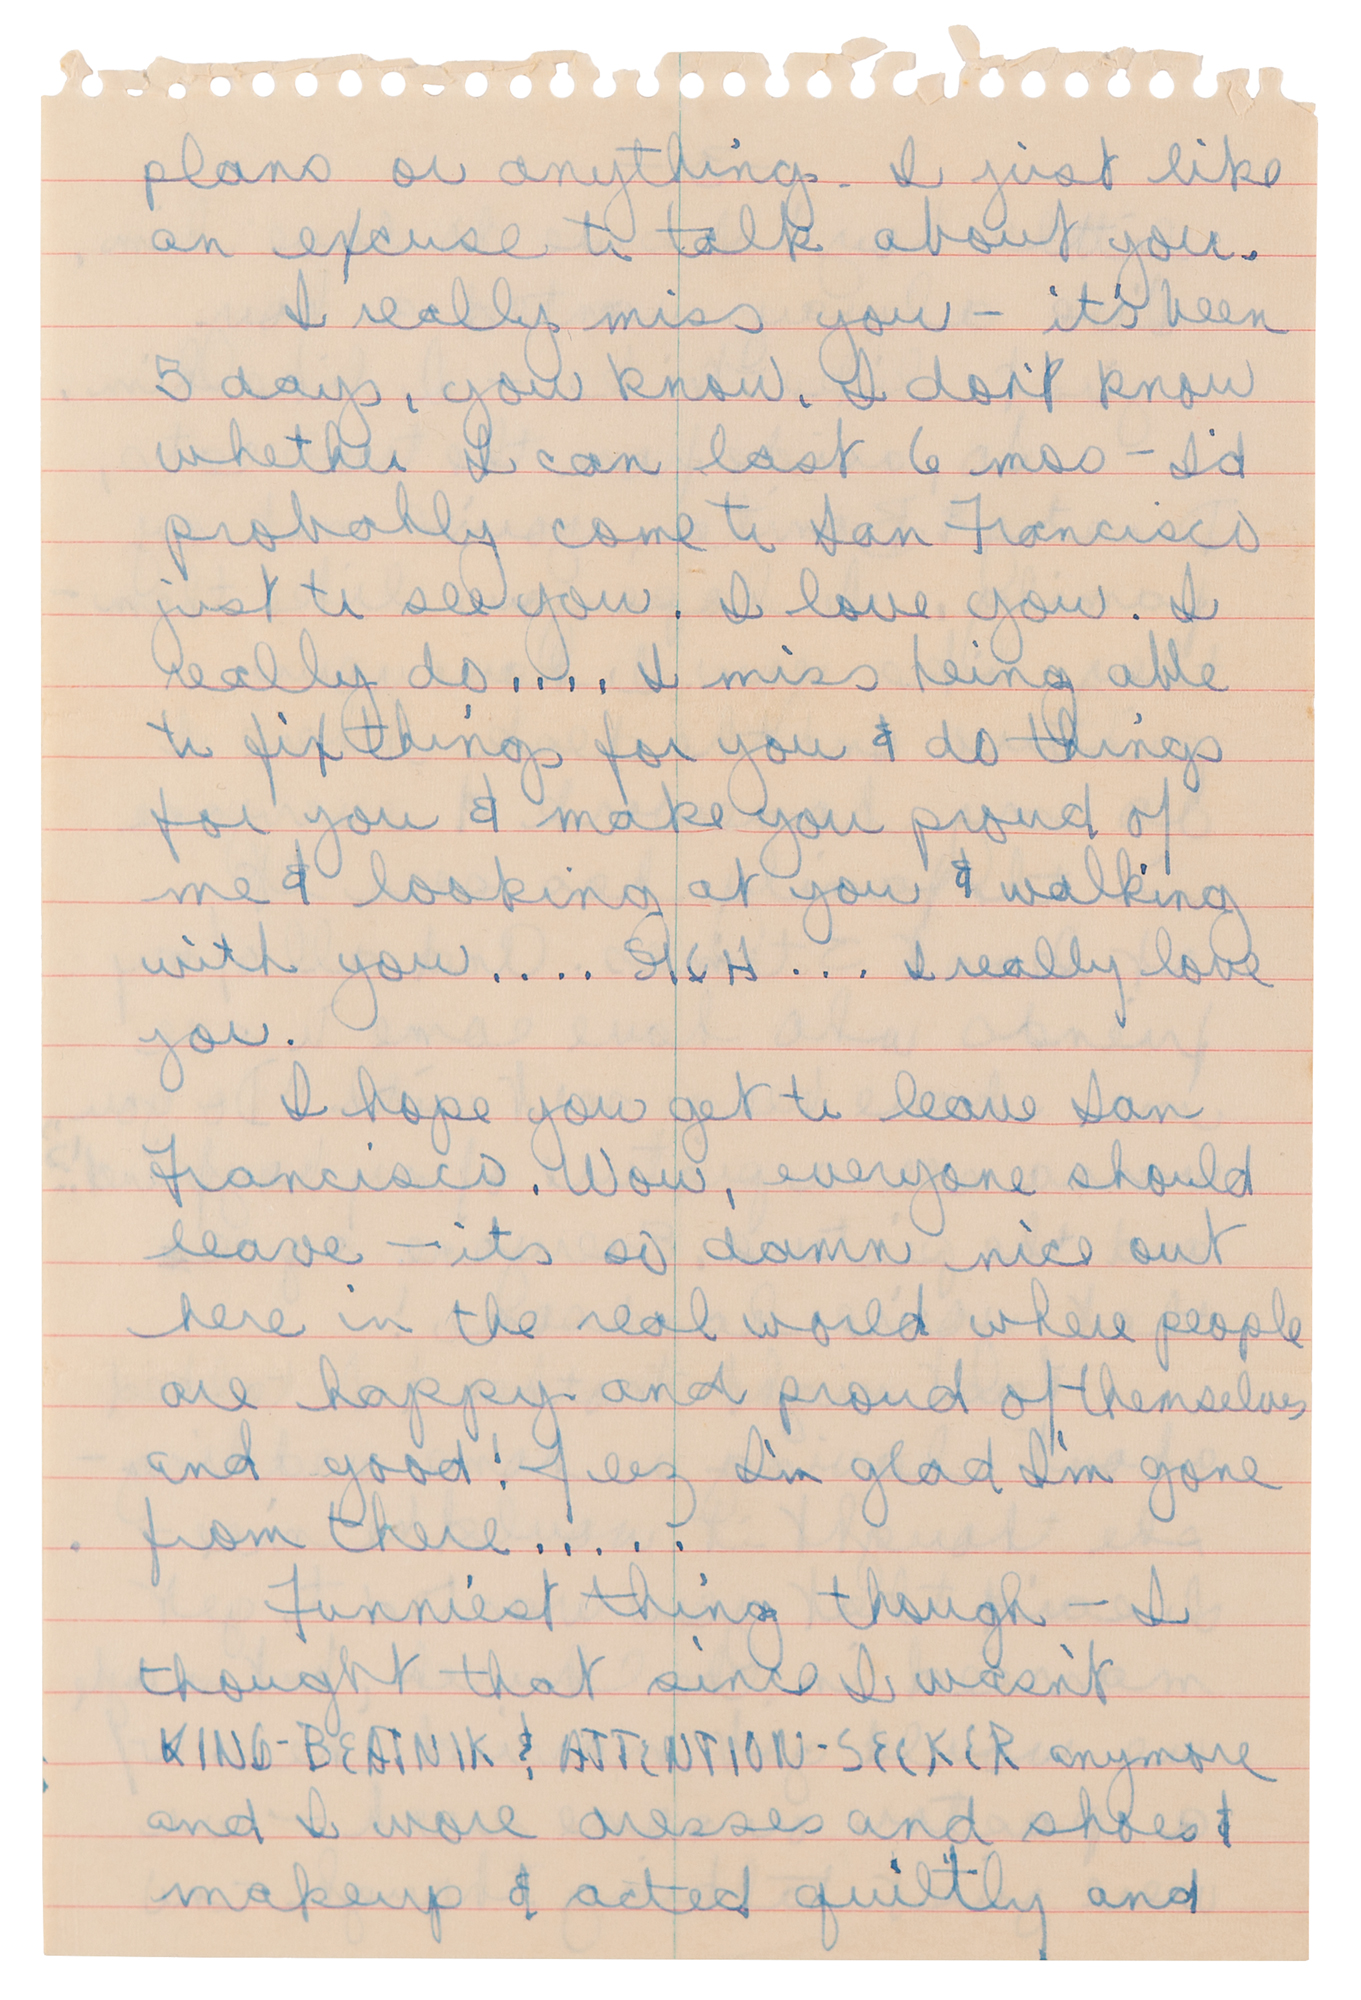 plans or anything. I just like
an excuse to talk about you.
I really miss you – it's been
5 days, you know. I don't know
whether I can last 6 mos – I'd
probably come to San Francisco
just to see you. I love you. I
really do.... I miss being able
to fix things for you & do things
for you & make you proud of
me & looking at you & walking
with you.... SIGH ... I really love
you.
I hope you get to leave San
Francisco. Wow, everyone should
leave – its so damn nice out
here in the real world where people
are happy and proud of themselves
and good! Jeez I'm glad I'm gone
from there.....
Funniest thing though – I
thought that since I wasn't
KING-BEATNIK & ATTENTION-SEEKER anymore
and I wore dresses and shoes &
makeup & acted quiltly and